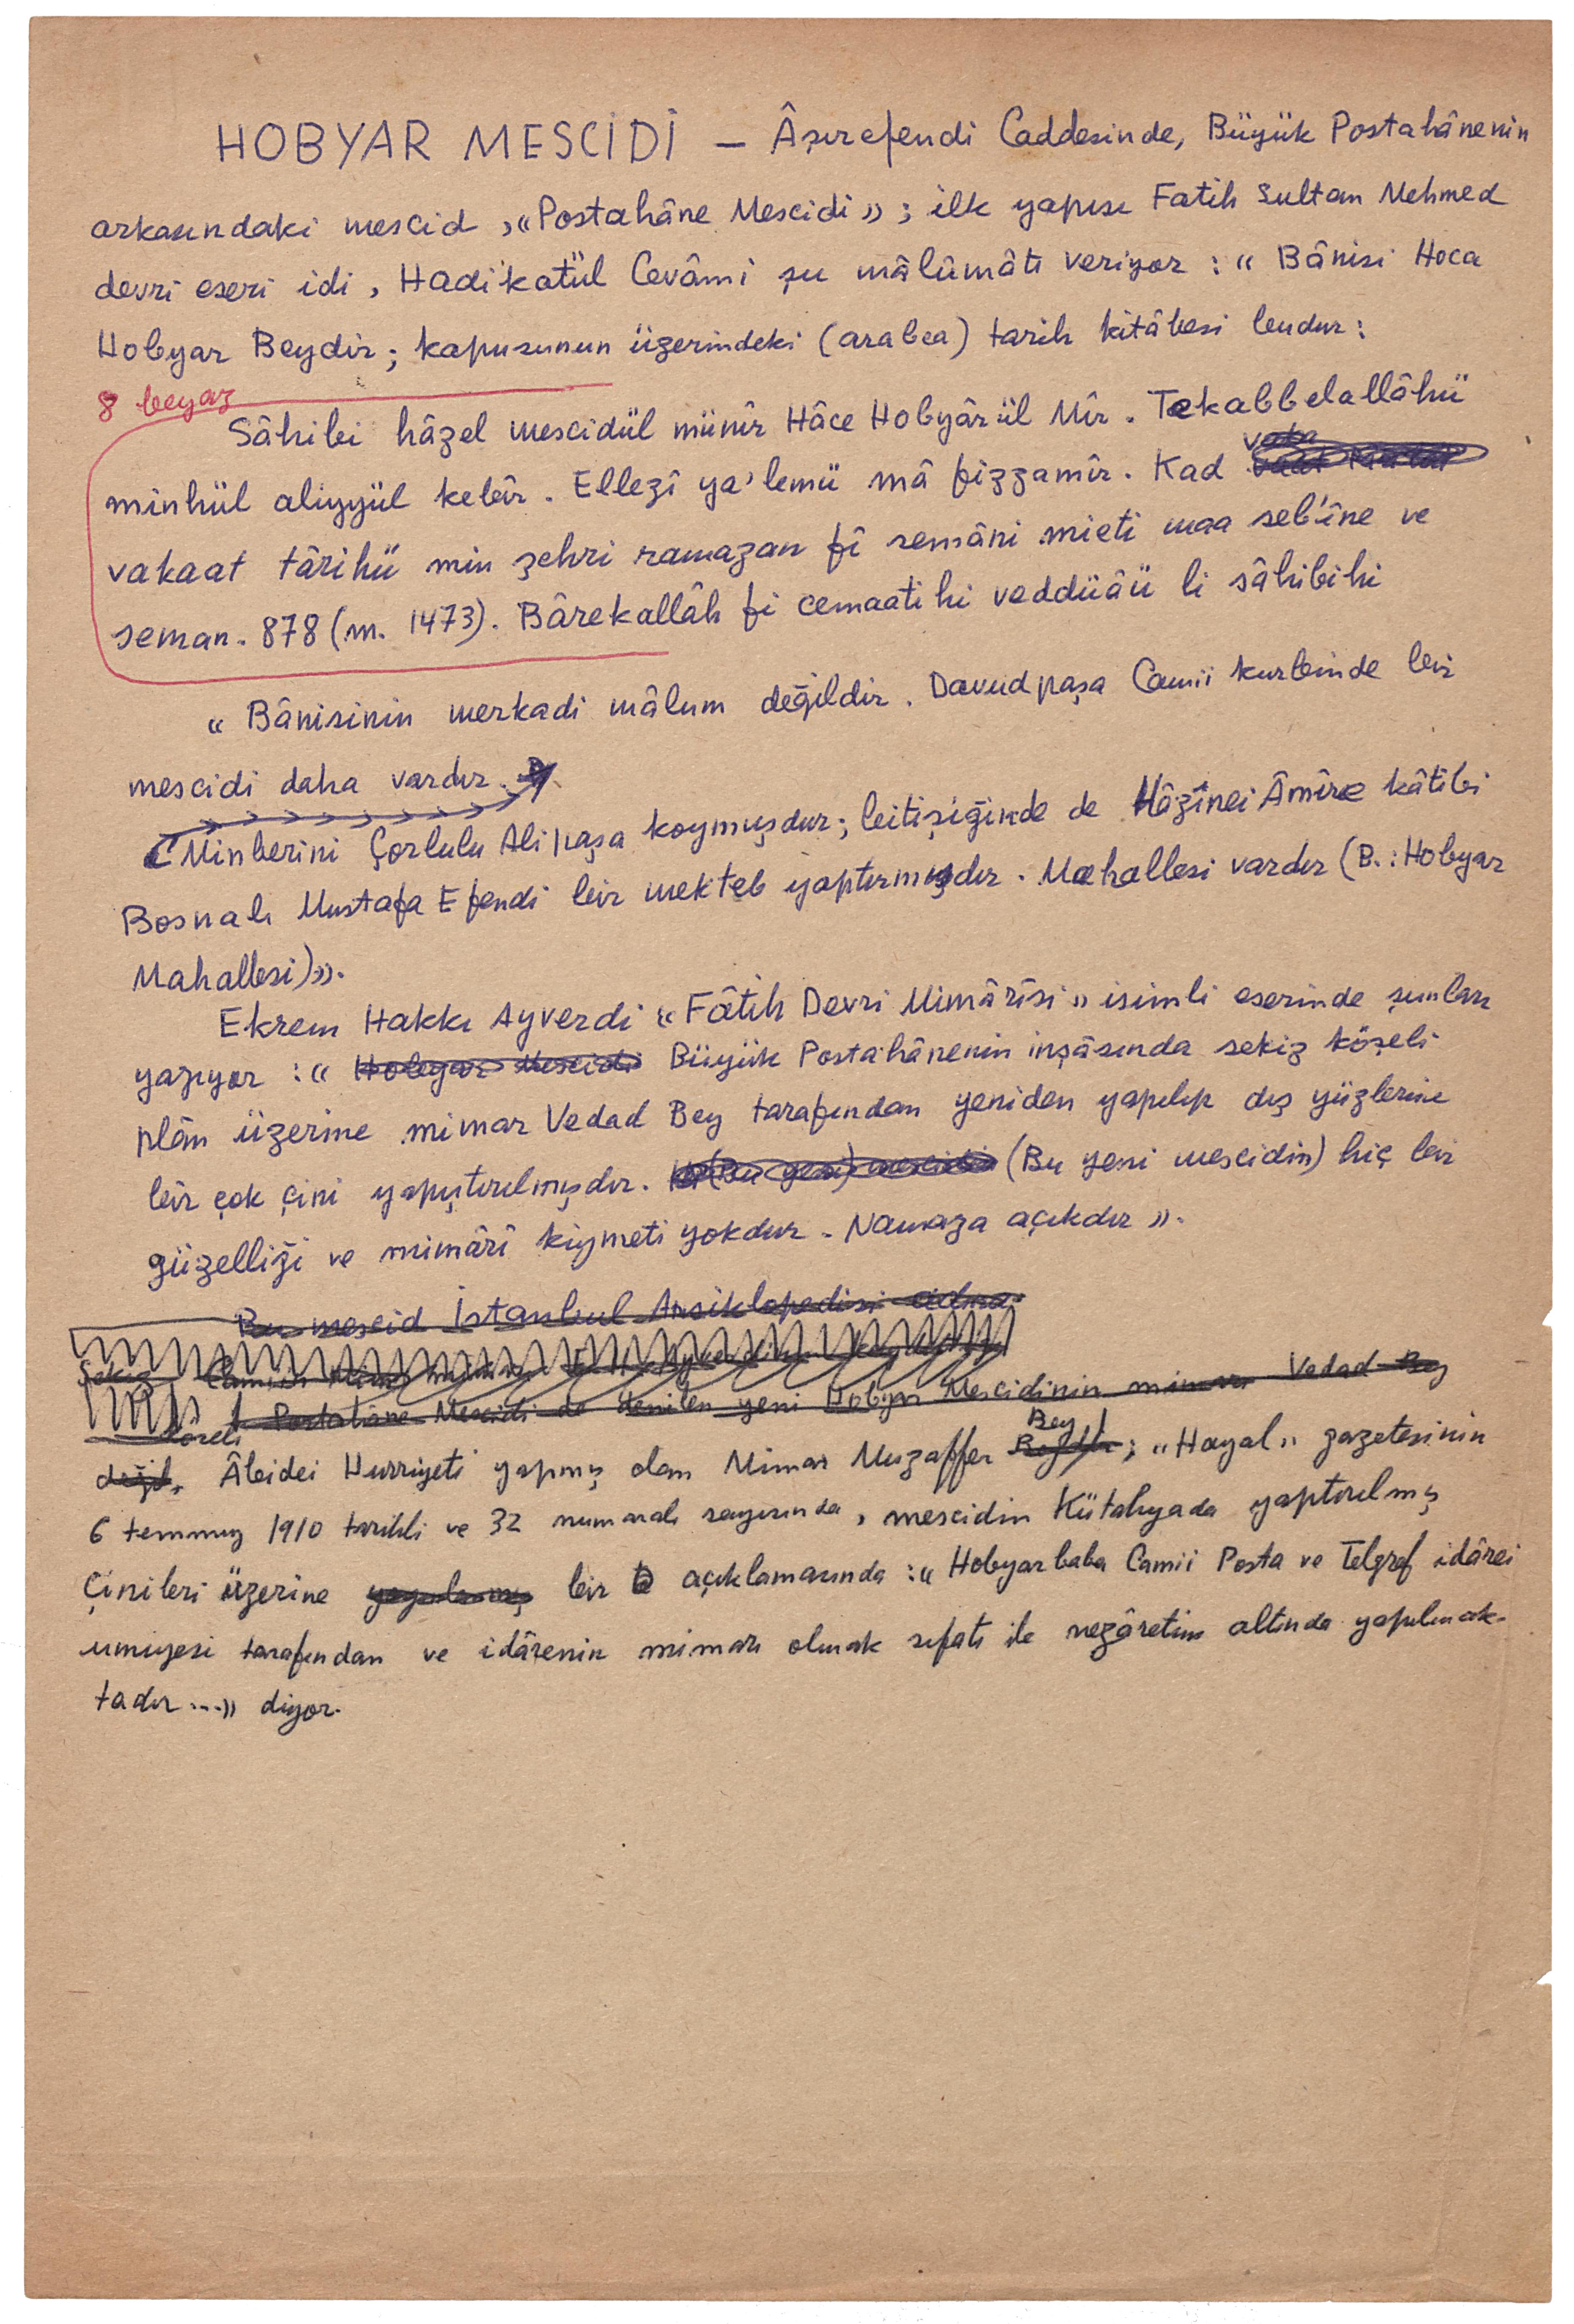 HOBYAR MESCİDİ — Âşırefendi Caddesinde, Büyük Postahânenin
arkasındaki mescid, «Postahâne Mescidi»; ilk yapısı Fatih Sultan Mehmed
devri eseri idi, Hadikatül Cevâmi şu mâlûmâtı veriyor: « Bânisi Hoca
Hobyar Beydir; kapusunun üzerindeki (arabca) tarih kitâbesi budur:
8 beyaz
Sâhibi hâzel mescidül münîr Hâce Hobyârül Mîr. Tekabbelallâhü
minhül aliyyül kebîr. Ellezî ya'lemü mâ fizzamîr. Kad
vakaat târihü min şehri ramazan fî semâni mieti maa seb'îne ve
seman. 878 (m. 1473). Bârekallâh fi cemaatihi veddüâü li sâhibihi
« Bânisinin merkadi mâlum değildir. Davudpaşa Camii kurbinde bir
mescidi daha vardır.
Minberini Çorlulu Alipaşa koymuşdur; bitişiğinde de Hâzînei Âmîre kâtibi
Bosnalı Mustafa Efendi bir mekteb yaptırmışdır. Mahallesi vardır (B.: Hobyar
Mahallesi)».
Ekrem Hakkı Ayverdi «Fâtih Devri Mimârîsi» isimli eserinde şunları
yazıyor: « Hobyar Mescidi Büyük Postahânenin inşâsında sekiz köşeli
plân üzerine mimar Vedad Bey tarafından yeniden yapılıp dış yüzlerine
bir çok çini yapıştırılmışdır. (Bu yeni) mescidin (Bu yeni mescidin) hiç bir
güzelliği ve mimârî kıymeti yokdur. Namaza açıkdır».
Bu mescid İstanbul Ansiklopedisi adına
Postahâne Mescidi de denilen yeni Hobyar Mescidinin mimarı Vedad Bey
Bey
değil, Âbidei Hurriyeti yapmış olan Mimar Muzaffer ; «Hayal» gazetesinin
6 temmuz 1910 tarihli ve 32 numaralı sayısında, mescidin Kütahyada yaptırılmış
Çinileri üzerine bir açıklamasında: « Hobyarbaba Camii Posta ve Telgraf idârei
umiyesi tarafından ve idârenin mimarı olmak sıfatı ile nezâretim altında yapılmak-
tadır...» diyor.